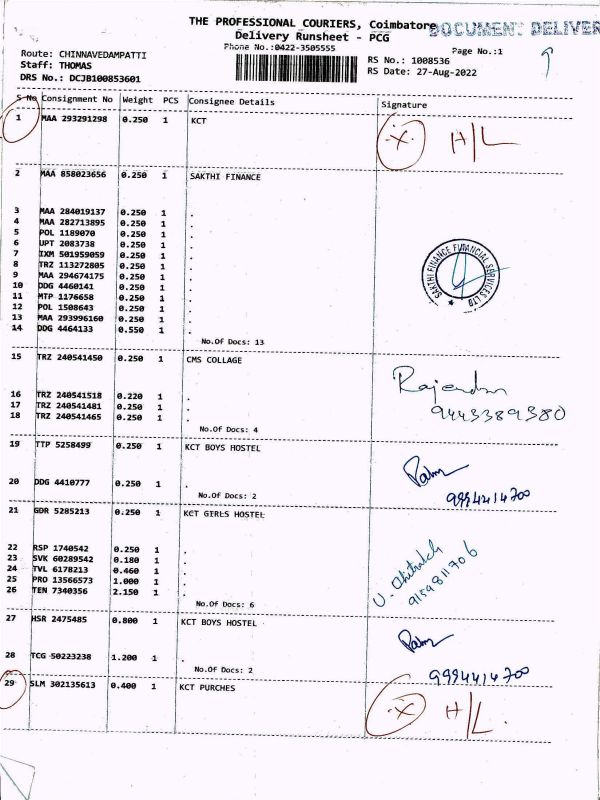 THE PROFESSIONAL COURIERS, Coimbatore
DOCUMENT DELIVER
Delivery Runsheet - PCG
Phone No.:0422-3505555
Page No.:1
Route: CHINNAVEDAMPATTI
Staff: THOMAS
DRS No.: DCJB100853601
RS No.: 1008536
RS Date: 27-Aug-2022
S No Consignment No Weight PCS Consignee Details Signature
1 MAA 293291298 0.250 1 KCT X H/L
2 MAA 858023656 0.250 1 SAKTHI FINANCE
3 MAA 284019137 0.250 1 .
4 MAA 282713895 0.250 1 .
5 POL 1189070 0.250 1 .
6 UPT 2083738 0.250 1 .
7 IXM 501959059 0.250 1 .
8 TRZ 113272805 0.250 1 .
9 MAA 294674175 0.250 1 .
10 DDG 4460141 0.250 1 .
11 MTP 1176658 0.250 1 .
12 POL 1508643 0.250 1 .
13 MAA 293996160 0.250 1 .
14 DDG 4464133 0.550 1 .
SAKTHI FINANCE FINANCIAL SERVICES LTD
No.Of Docs: 13
15 TRZ 240541450 0.250 1 CMS COLLAGE
Rajendran
9443389380
16 TRZ 240541518 0.220 1 .
17 TRZ 240541481 0.250 1 .
18 TRZ 240541465 0.250 1 .
No.Of Docs: 4
19 TTP 5258499 0.250 1 KCT BOYS HOSTEL
20 DDG 4410777 0.250 1 .
9994414700
No.Of Docs: 2
21 GDR 5285213 0.250 1 KCT GIRLS HOSTEL
22 RSP 1740542 0.250 1 .
23 SVK 60289542 0.180 1 .
24 TVL 6178213 0.460 1 .
25 PRO 13566573 1.000 1 .
26 TEN 7340356 2.150 1 .
9159811706
No.Of Docs: 6
27 HSR 2475485 0.800 1 KCT BOYS HOSTEL
28 TCG 50223238 1.200 1 .
No.Of Docs: 2
9994414700
29 SLM 302135613 0.400 1 KCT PURCHES X H/L.